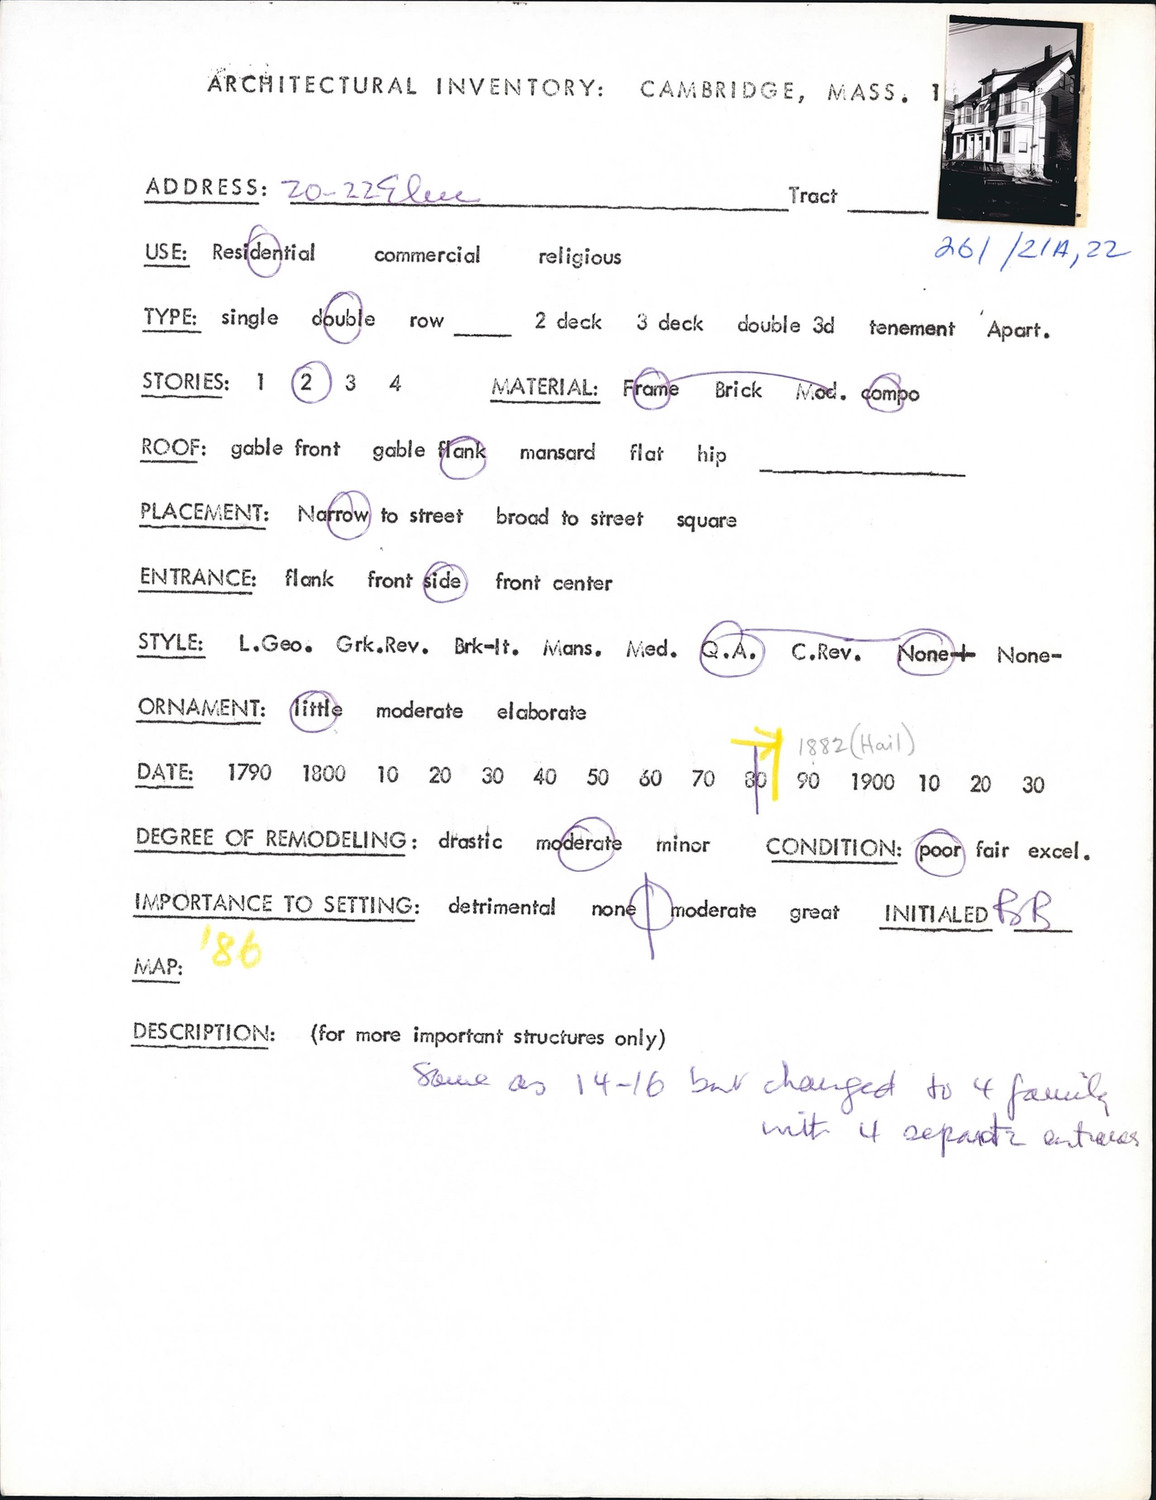 ARCHITECTURAL INVENTORY: CAMBRIDGE, MASS. 1
ADDRESS: 20-22 Elm Tract
261/21A, 22
USE: Residential commercial religious
TYPE: single double row 2 deck 3 deck double 3d tenement Apart.
STORIES: 1 2 3 4 MATERIAL: Frame Brick Mod. compo
ROOF: gable front gable flank mansard flat hip
PLACEMENT: Narrow to street broad to street square
ENTRANCE: flank front side front center
STYLE: L.Geo. Grk.Rev. Brk-It. Mans. Med. Q.A. C.Rev. None+ None-
ORNAMENT: little moderate elaborate
1882 (Hail)
DATE: 1790 1800 10 20 30 40 50 60 70 80 90 1900 10 20 30
DEGREE OF REMODELING: drastic moderate minor CONDITION: poor fair excel.
IMPORTANCE TO SETTING: detrimental none moderate great INITIALED BB
'86
MAP:
DESCRIPTION: (for more important structures only)
Same as 14-16 but changed to 4 family
with 4 separate entrances